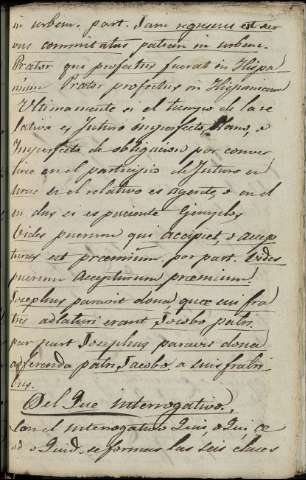 in urbem. part. Dam regressus est ser
vus commitatus patrem in urbem.
Prator qui profectus fuerat in Hispa
niam Prator profectus in Hispaniam
Ultimamente si el tiempo de la re
lativa es Futuro imperfecto llano, o
Imperfecto de obligacion por conver
tirse en el participio de Futuro en
rus si el relativo es agente, o en el
in dus si es paciente Gemplos
Vides puerum qui accipiet, o accep
turus est præmium, por part. Vides
puerum accepturum præmium
Josephus paravit dona quæ sui fra
tres adlaturi erant Jacobo patri.
por part Josephus paravit dona
afferenda patri Jacobo a suis fratri
bus.
Del Que interrogativo.
Con el interrogativo Quis, o Qui, Quæ
o Quid se forman las seis clases